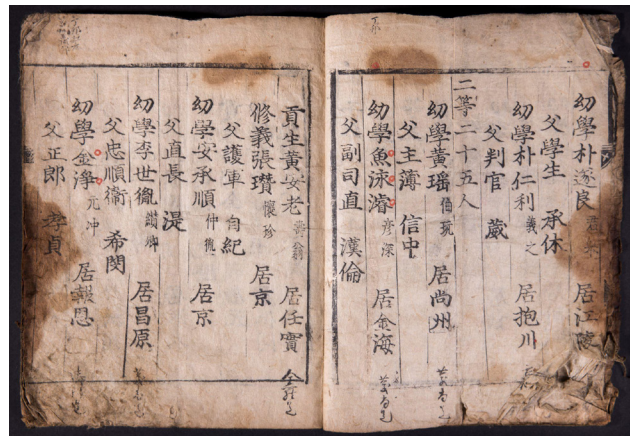 幼學朴遂良 居江陵
父學生 承休
幼學朴仁利 義之 居抱川
父判官 葳
二等二十五人
幼學黃瑶 伯珫 居尚州
父主簿 信中
幼學魚泳濬 彦深 居金海
父副司直 漢倫
貢生黃安老 壽翁 居任實
修義張瓚 懷珍 居京
父護軍 自紀
幼學安承順 仲 居京
父直長 湜
幼學李世胤 居昌原
父忠順衛 希閔
幼學金淨 元冲 居報恩
父正郎 孝貞